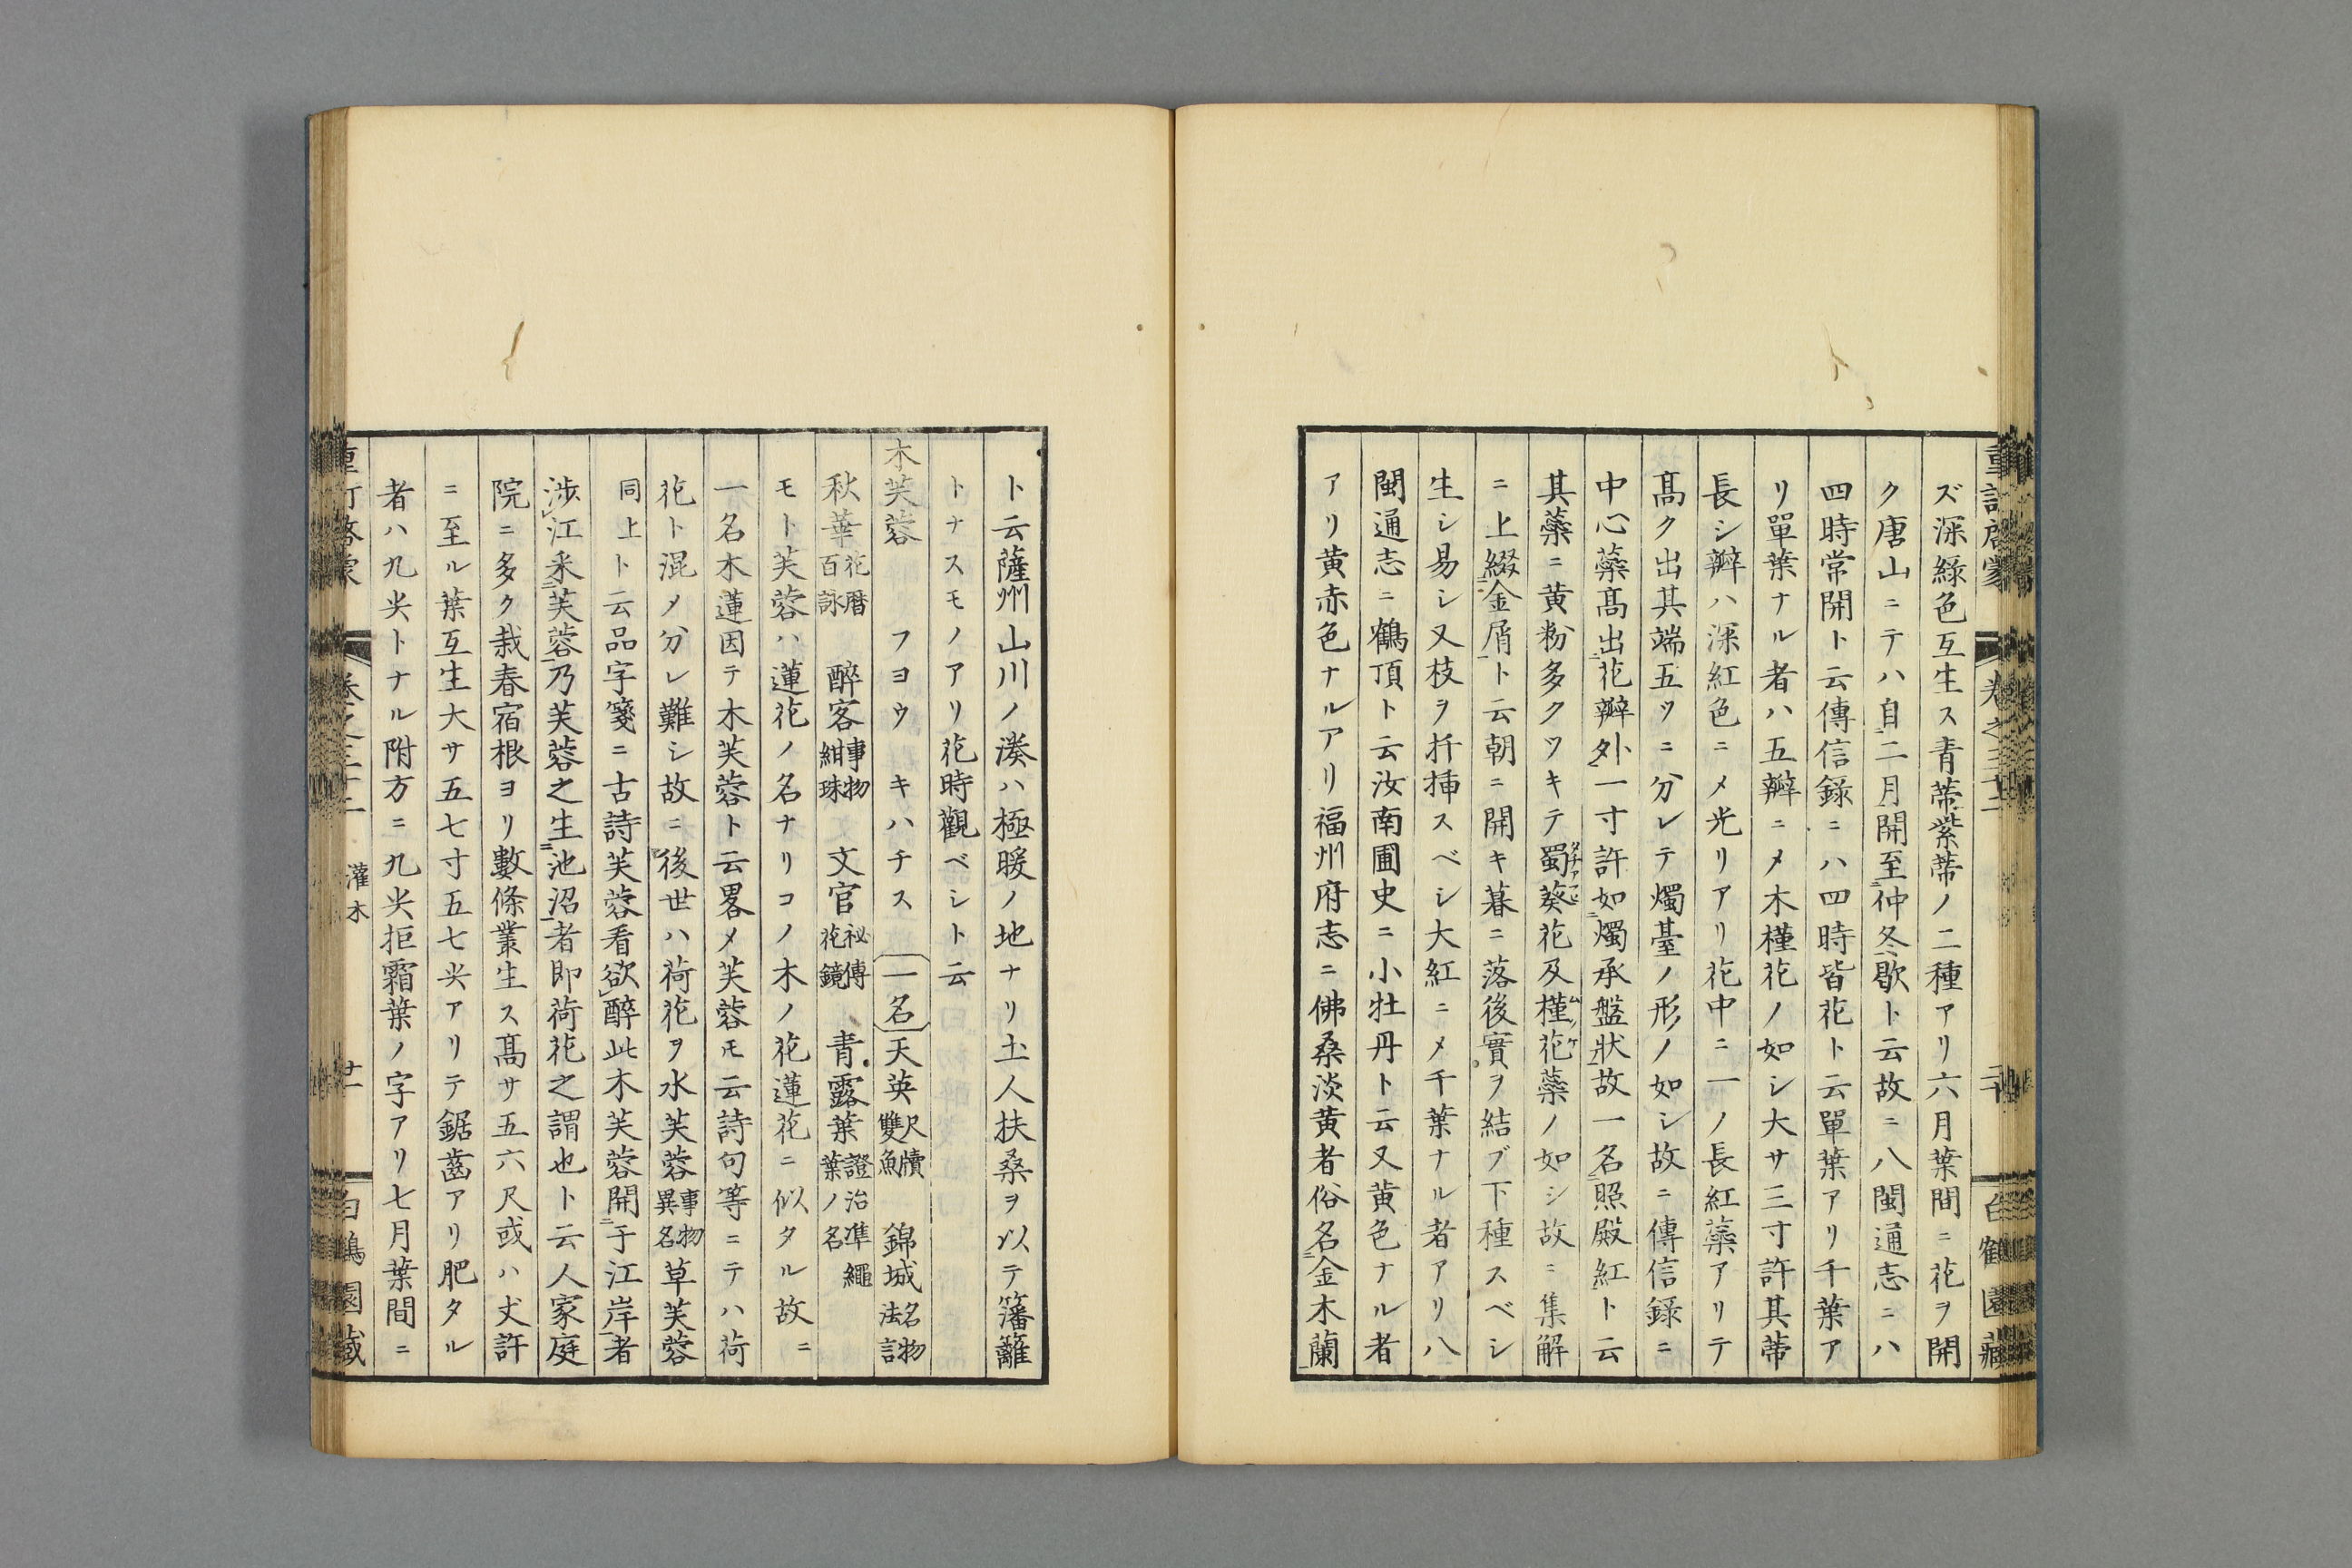 重訂啓蒙 卷之三十二 二十 白鶴園藏
ズ深綠色互生ス青蒂紫蒂ノ二種アリ六月葉間ニ花ヲ開
ク唐山ニテハ自二月開至仲冬歇ト云故ニ八閩通志ニハ
四時常開ト云傳信錄ニハ四時皆花ト云單葉アリ千葉ア
リ單葉ナル者ハ五瓣ニメ木槿花ノ如シ大サ三寸許其蒂
長シ瓣ハ深紅色ニメ光リアリ花中ニ一ノ長紅蘂アリテ
髙ク出其端五ツニ分レテ燭臺ノ形ノ如シ故ニ傳信錄ニ
中心蘂髙出花瓣外一寸許如燭承盤狀故一名照殿紅ト云
其蘂ニ黄粉多クツキテ蜀葵花及槿花蘂ノ如シ故ニ集解
ニ上綴金屑ト云朝ニ開キ暮ニ落後實ヲ結ブ下種スベシ
生シ易シ又枝ヲ扦挿スベシ大紅ニメ千葉ナル者アリ八
閩通志ニ鶴頂ト云汝南圃史ニ小牡丹ト云又黄色ナル者
アリ黄赤色ナルアリ福州府志ニ佛桑淡黄者俗名金木蘭
ト云薩州山川ノ湊ハ極暖ノ地ナリ土人扶桑ヲ以テ籓籬
トナスモノアリ花時觀ベシト云
木芙蓉 フヨウ キハチス 一名 天英 尺牘雙魚 錦城 名物法言
秋華 花暦百詠 醉客 事物紺珠 文官 祕傳花鏡 青露葉 證治凖繩葉ノ名
モト芙蓉ハ蓮花ノ名ナリコノ木ノ花蓮花ニ似タル故ニ
一名木蓮因テ木芙蓉ト云畧メ芙蓉モ云詩句等ニテハ荷
花ト混ノ分レ難シ故ニ後世ハ荷花ヲ水芙蓉 事物異名 草芙蓉
同上ト云品字箋ニ古詩芙蓉看欲醉此木芙蓉開于江岸者
渉江釆芙蓉乃芙蓉之生池沼者即荷花之謂也ト云人家庭
院ニ多ク栽春宿根ヨリ數條叢生ス髙サ五六尺或ハ丈許
ニ至ル葉互生大サ五七寸五七尖アリテ鋸齒アリ肥タル
者ハ九尖トナル附方ニ九尖拒霜葉ノ字アリ七月葉間ニ
灌木 廿一